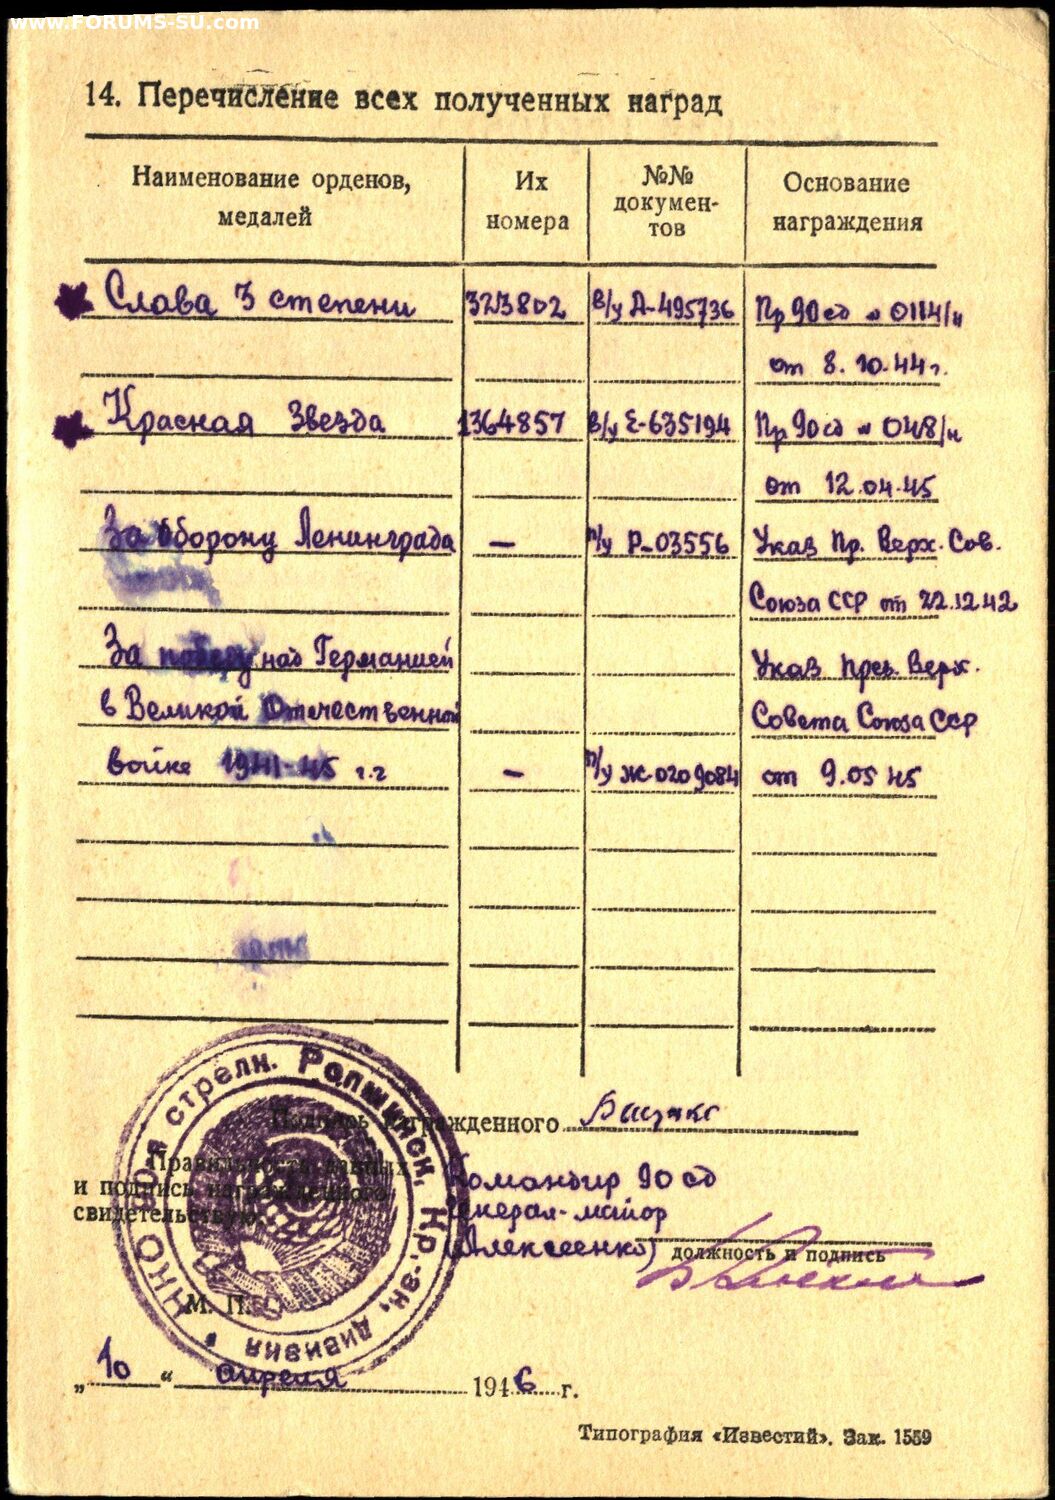 www.FORUMS-SU.com
14. Перечисление всех полученных наград
Наименование орденов, медалей
Их номера
№№ докумен-тов
Основание награждения
Слава 3 степени 323802 в/у Д-495736 Пр 90 сд № 0114/н
от 8.10.44 г.
Красная Звезда 1364857 в/у Е-635194 Пр 90 сд № 048/н
от 12.04.45
За оборону Ленинграда — п/у Р-03556 Указ Пр. Верх. Сов.
Союза ССР от 22.12.42
За победу над Германией Указ През. Верх.
в Великой Отечественной Совета Союза ССР
войне 1941-45 г.г — п/у Ж-0209084 от 9.05 45
Подпись награжденного
Правильность данных
и подпись награжденного
свидетельствую:
Командир 90 сд
генерал-майор
(Алексеенко)
должность и подпись
М. П.
НКО 90-я стрелк. Ропшинск. Кр.-зн. дивизия
„10“ апреля 1946 г.
Типография «Известий». Зак. 1559